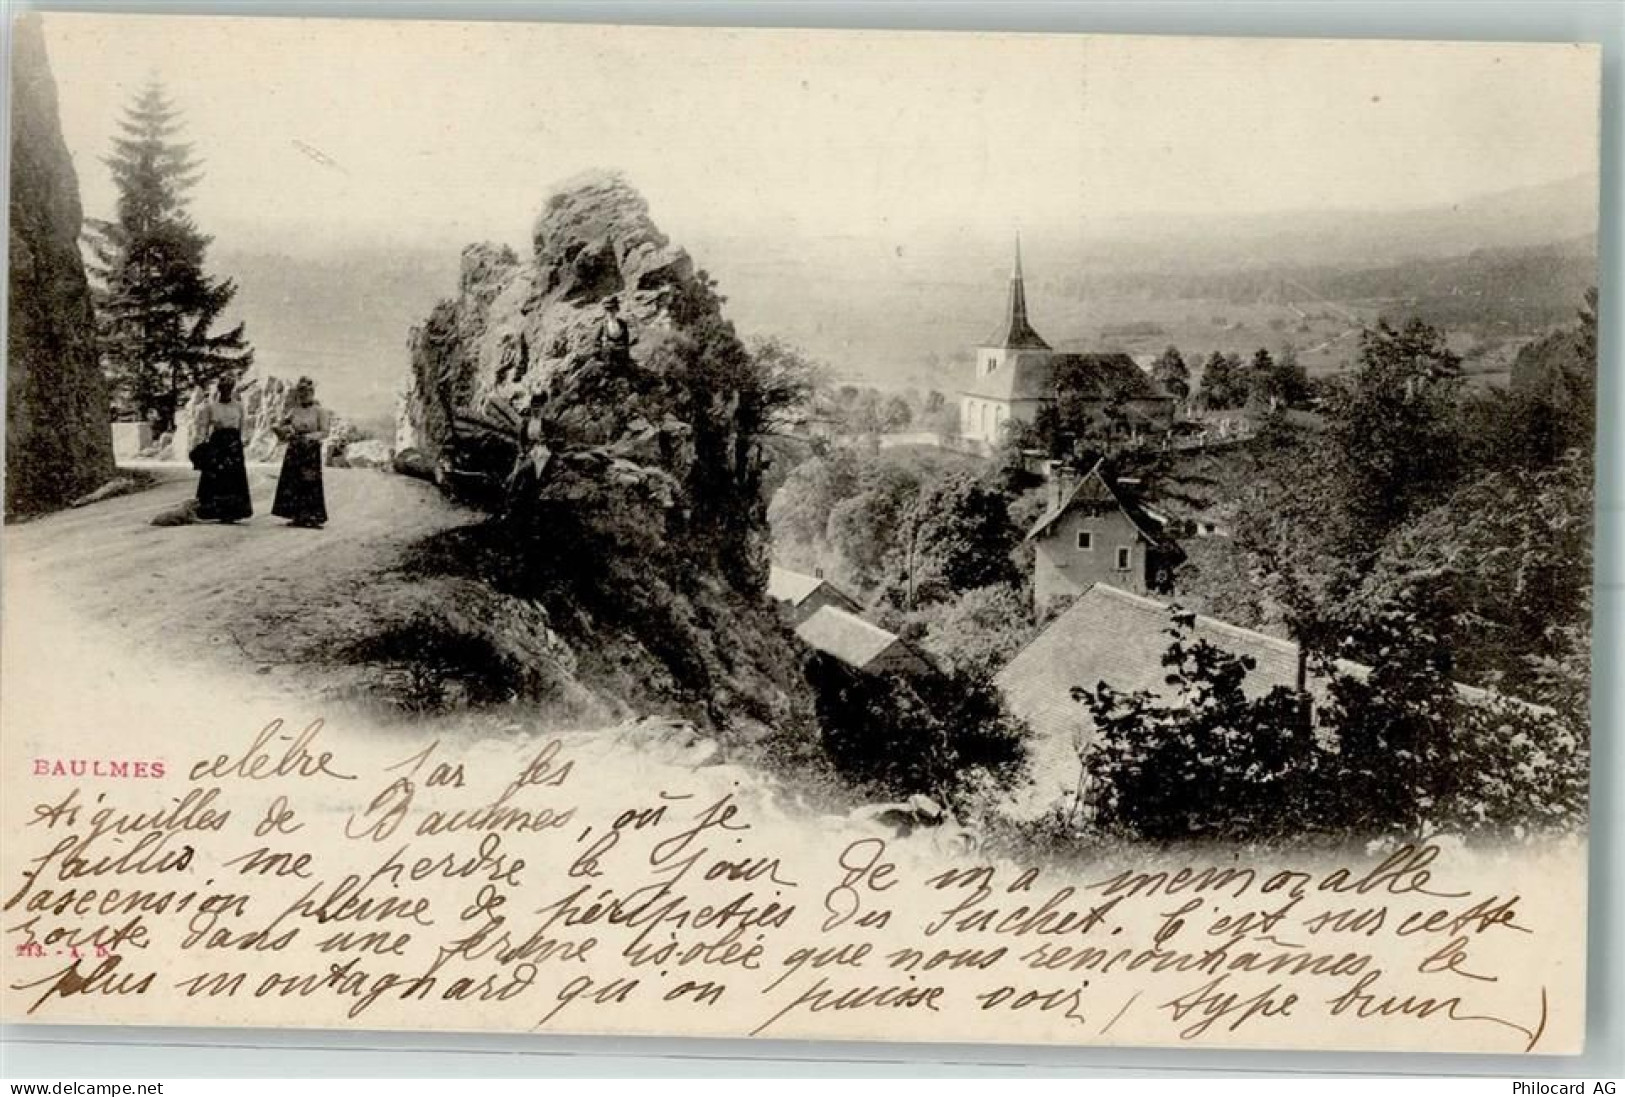 BAULMES celèbre par les
Aiguilles de Baulmes, où je
faillis me perdre le jour de ma memorable
ascension pleine de péripeties du Suchet. C'est sur cette
route dans une ferme isolée que nous rencontrâmes le
213. - A. D.
plus montagnard qu'on puisse voir (type brun)
www.delcampe.net
Philocard AG